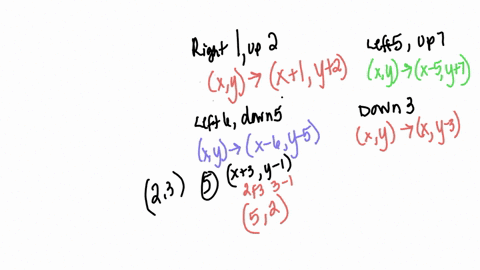 Right 1, up 2
(x,y) → (x+1, y+2)
Left 5, up 7
(x,y) → (x-5, y+7)
Left 6, down 5
(x,y) → (x-6, y-5)
Down 3
(x,y) → (x, y-3)
(2,3) 5 (x+3, y-1)
2+3 3-1
(5,2)